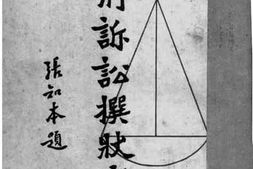 訴訟撰狀
張知本題